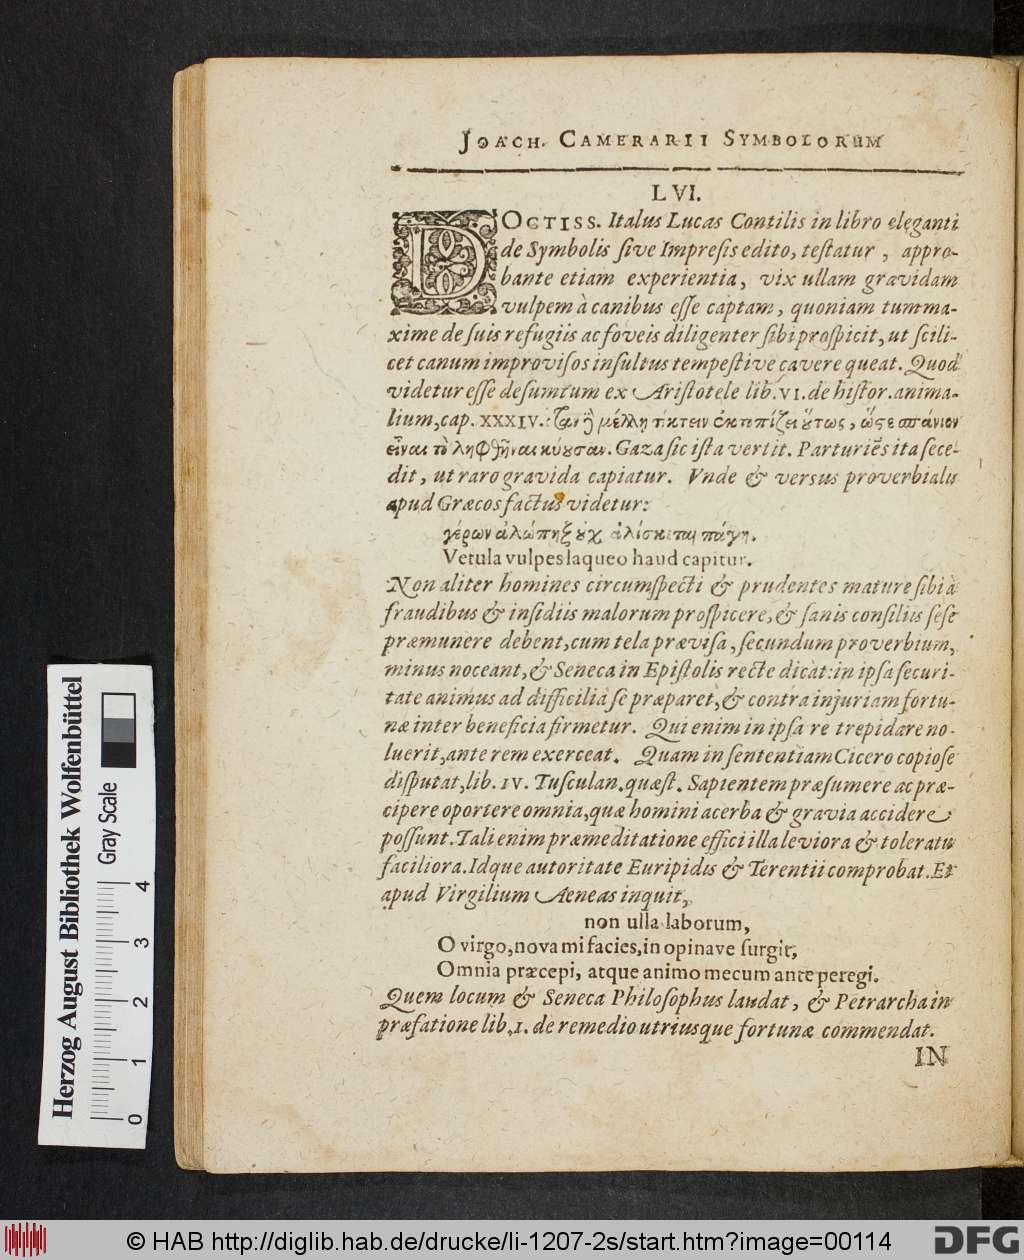 JOACH. CAMERARII SYMBOLORUM
LVI.
DOCTISS. Italus Lucas Contilis in libro eleganti
de Symbolis ſive Impreſis edito, teſtatur, appro-
bante etiam experientia, vix ullam gravidam
vulpem à canibus eſſe captam, quoniam tum ma-
xime de ſuis refugiis ac foveis diligenter ſibi proſpicit, ut ſcili-
cet canum improviſos inſultus tempeſtive cavere queat. Quod
videtur eſſe deſumtum ex Ariſtotele lib. VI. de hiſtor. anima-
lium, cap. XXXIV.: ὅταν ἢ μέλλῃ τίκτειν ἐκτοπίζει οὕτως, ὥστε σπάνιον
εἶναι τὸ ληφθῆναι κύουσαν. Gaza ſic iſta vertit. Parturiẽs ita ſece-
dit, ut raro gravida capiatur. Vnde & verſus proverbialis
apud Græcos factus videtur:
γέρων ἀλώπηξ οὐχ ἁλίσκεται πάγῃ.
Vetula vulpes laqueo haud capitur.
Non aliter homines circumſpecti & prudentes mature ſibi à
fraudibus & inſidiis malorum proſpicere, & ſanis conſiliis ſeſe
præmunere debent, cum tela præviſa, ſecundum proverbium,
minus noceant, & Seneca in Epiſtolis recte dicat: in ipſa ſecuri-
tate animus ad difficilia ſe præparet, & contra injuriam fortu-
næ inter beneficia firmetur. Qui enim in ipſa re trepidare no-
luerit, ante rem exerceat. Quam in ſententiam Cicero copioſe
diſputat, lib. IV. Tuſculan. quæſt. Sapientem præſumere ac præ-
cipere oportere omnia, quæ homini acerba & gravia accidere
poſſunt. Tali enim præmeditatione effici illa leviora & toleratu
faciliora. Idque autoritate Euripidis & Terentii comprobat. Et
apud Virgilium Aeneas inquit,
non ulla laborum,
O virgo, nova mi facies, in opinave ſurgit,
Omnia præcepi, atque animo mecum ante peregi.
Quem locum & Seneca Philoſophus laudat, & Petrarcha in
præfatione lib. 1. de remedio utriusque fortunæ commendat.
IN
Herzog August Bibliothek Wolfenbüttel
Gray Scale
0 1 2 3 4
© HAB http://diglib.hab.de/drucke/li-1207-2s/start.htm?image=00114
DFG